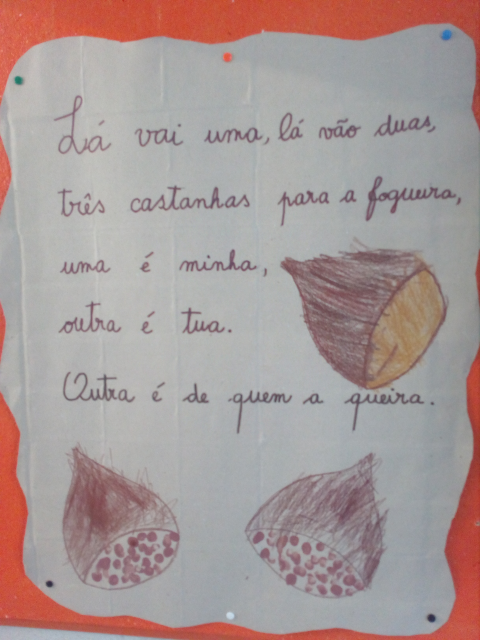 Lá vai uma, lá vão duas,
três castanhas para a fogueira,
uma é minha,
outra é tua.
Outra é de quem a queira.